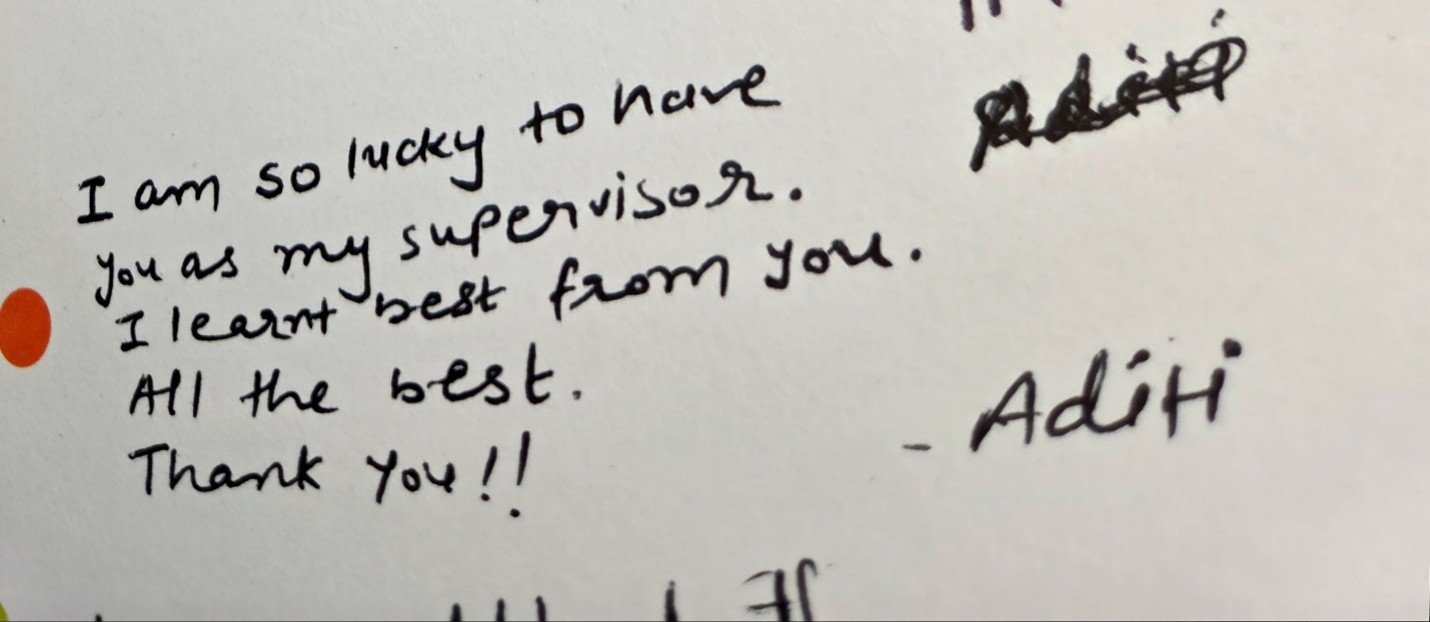 I am so lucky to have
you as my supervisor.
I learnt best from you.
All the best.
Thank you!!
- Aditi